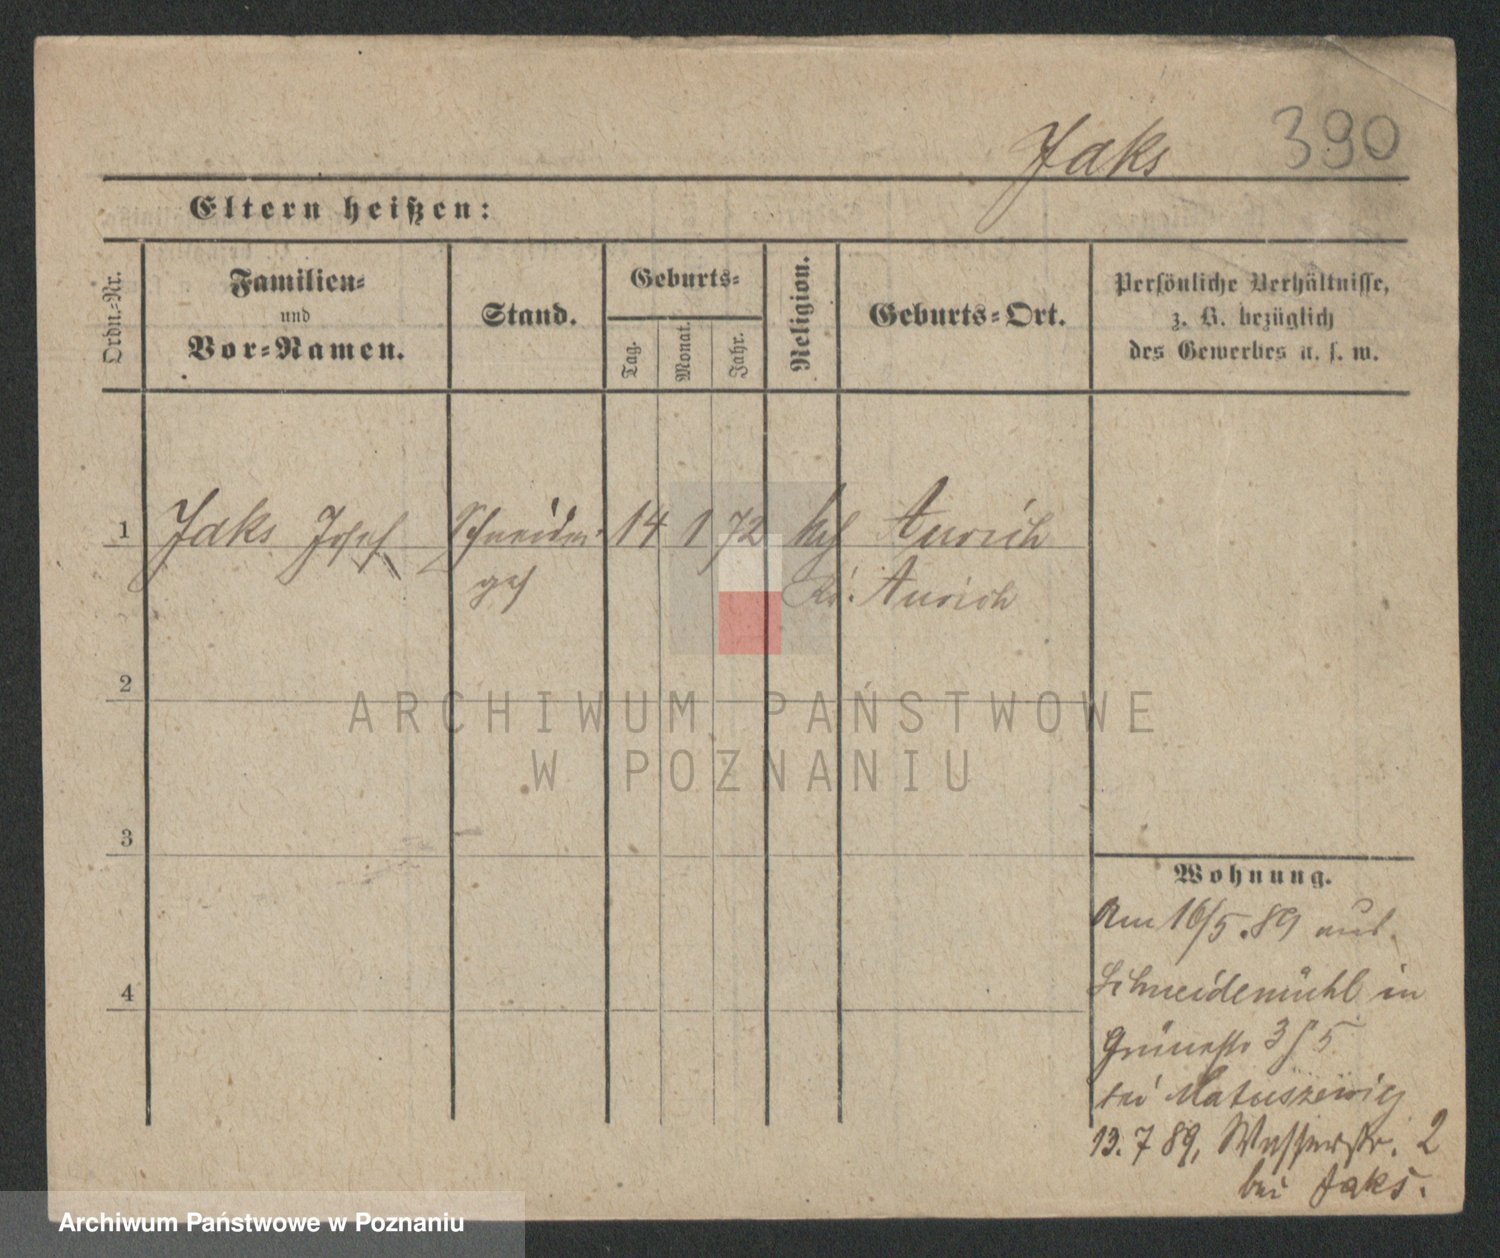 Jaks 390
Eltern heißen:
Ordn.-Nr.
Familien-
und
Vor-Namen.
Stand.
Geburts-
Tag.
Monat.
Jahr.
Religion.
Geburts-Ort.
Persönliche Verhältnisse,
z. B. bezüglich
des Gewerbes u. s. w.
1 Jaks Josef Schneider- 14 1 72 kth Aurich
ges Kr. Aurich
2
3
4
Wohnung.
Am 16/5.89 aus
Schneidemühl in
Grünestr 3/5
bei Matuszewig
13.7 89, Wasserstr. 2
bei Jaks.
ARCHIWUM PAŃSTWOWE
W POZNANIU
Archiwum Państwowe w Poznaniu